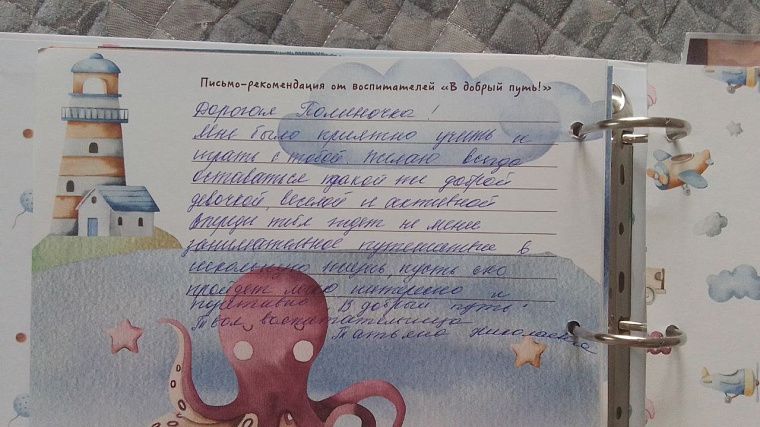 Письмо-рекомендация от воспитателей «В добрый путь!»
Дорогая Полиночка!
Мне было приятно учить и
играть с тобой, желаю всегда
оставаться такой же доброй
девочкой, веселой и активной
Впереди тебя ждет не менее
занимательное путешествие в
школьную жизнь, пусть оно
пройдет легко интересно и
позитивно. В добрый путь!
Твоя воспитательница
Татьяна Николаевна